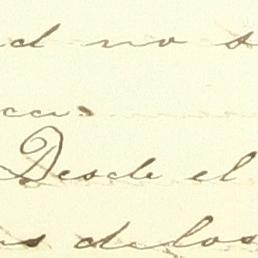 d no s
ca.
Desde el
s de los